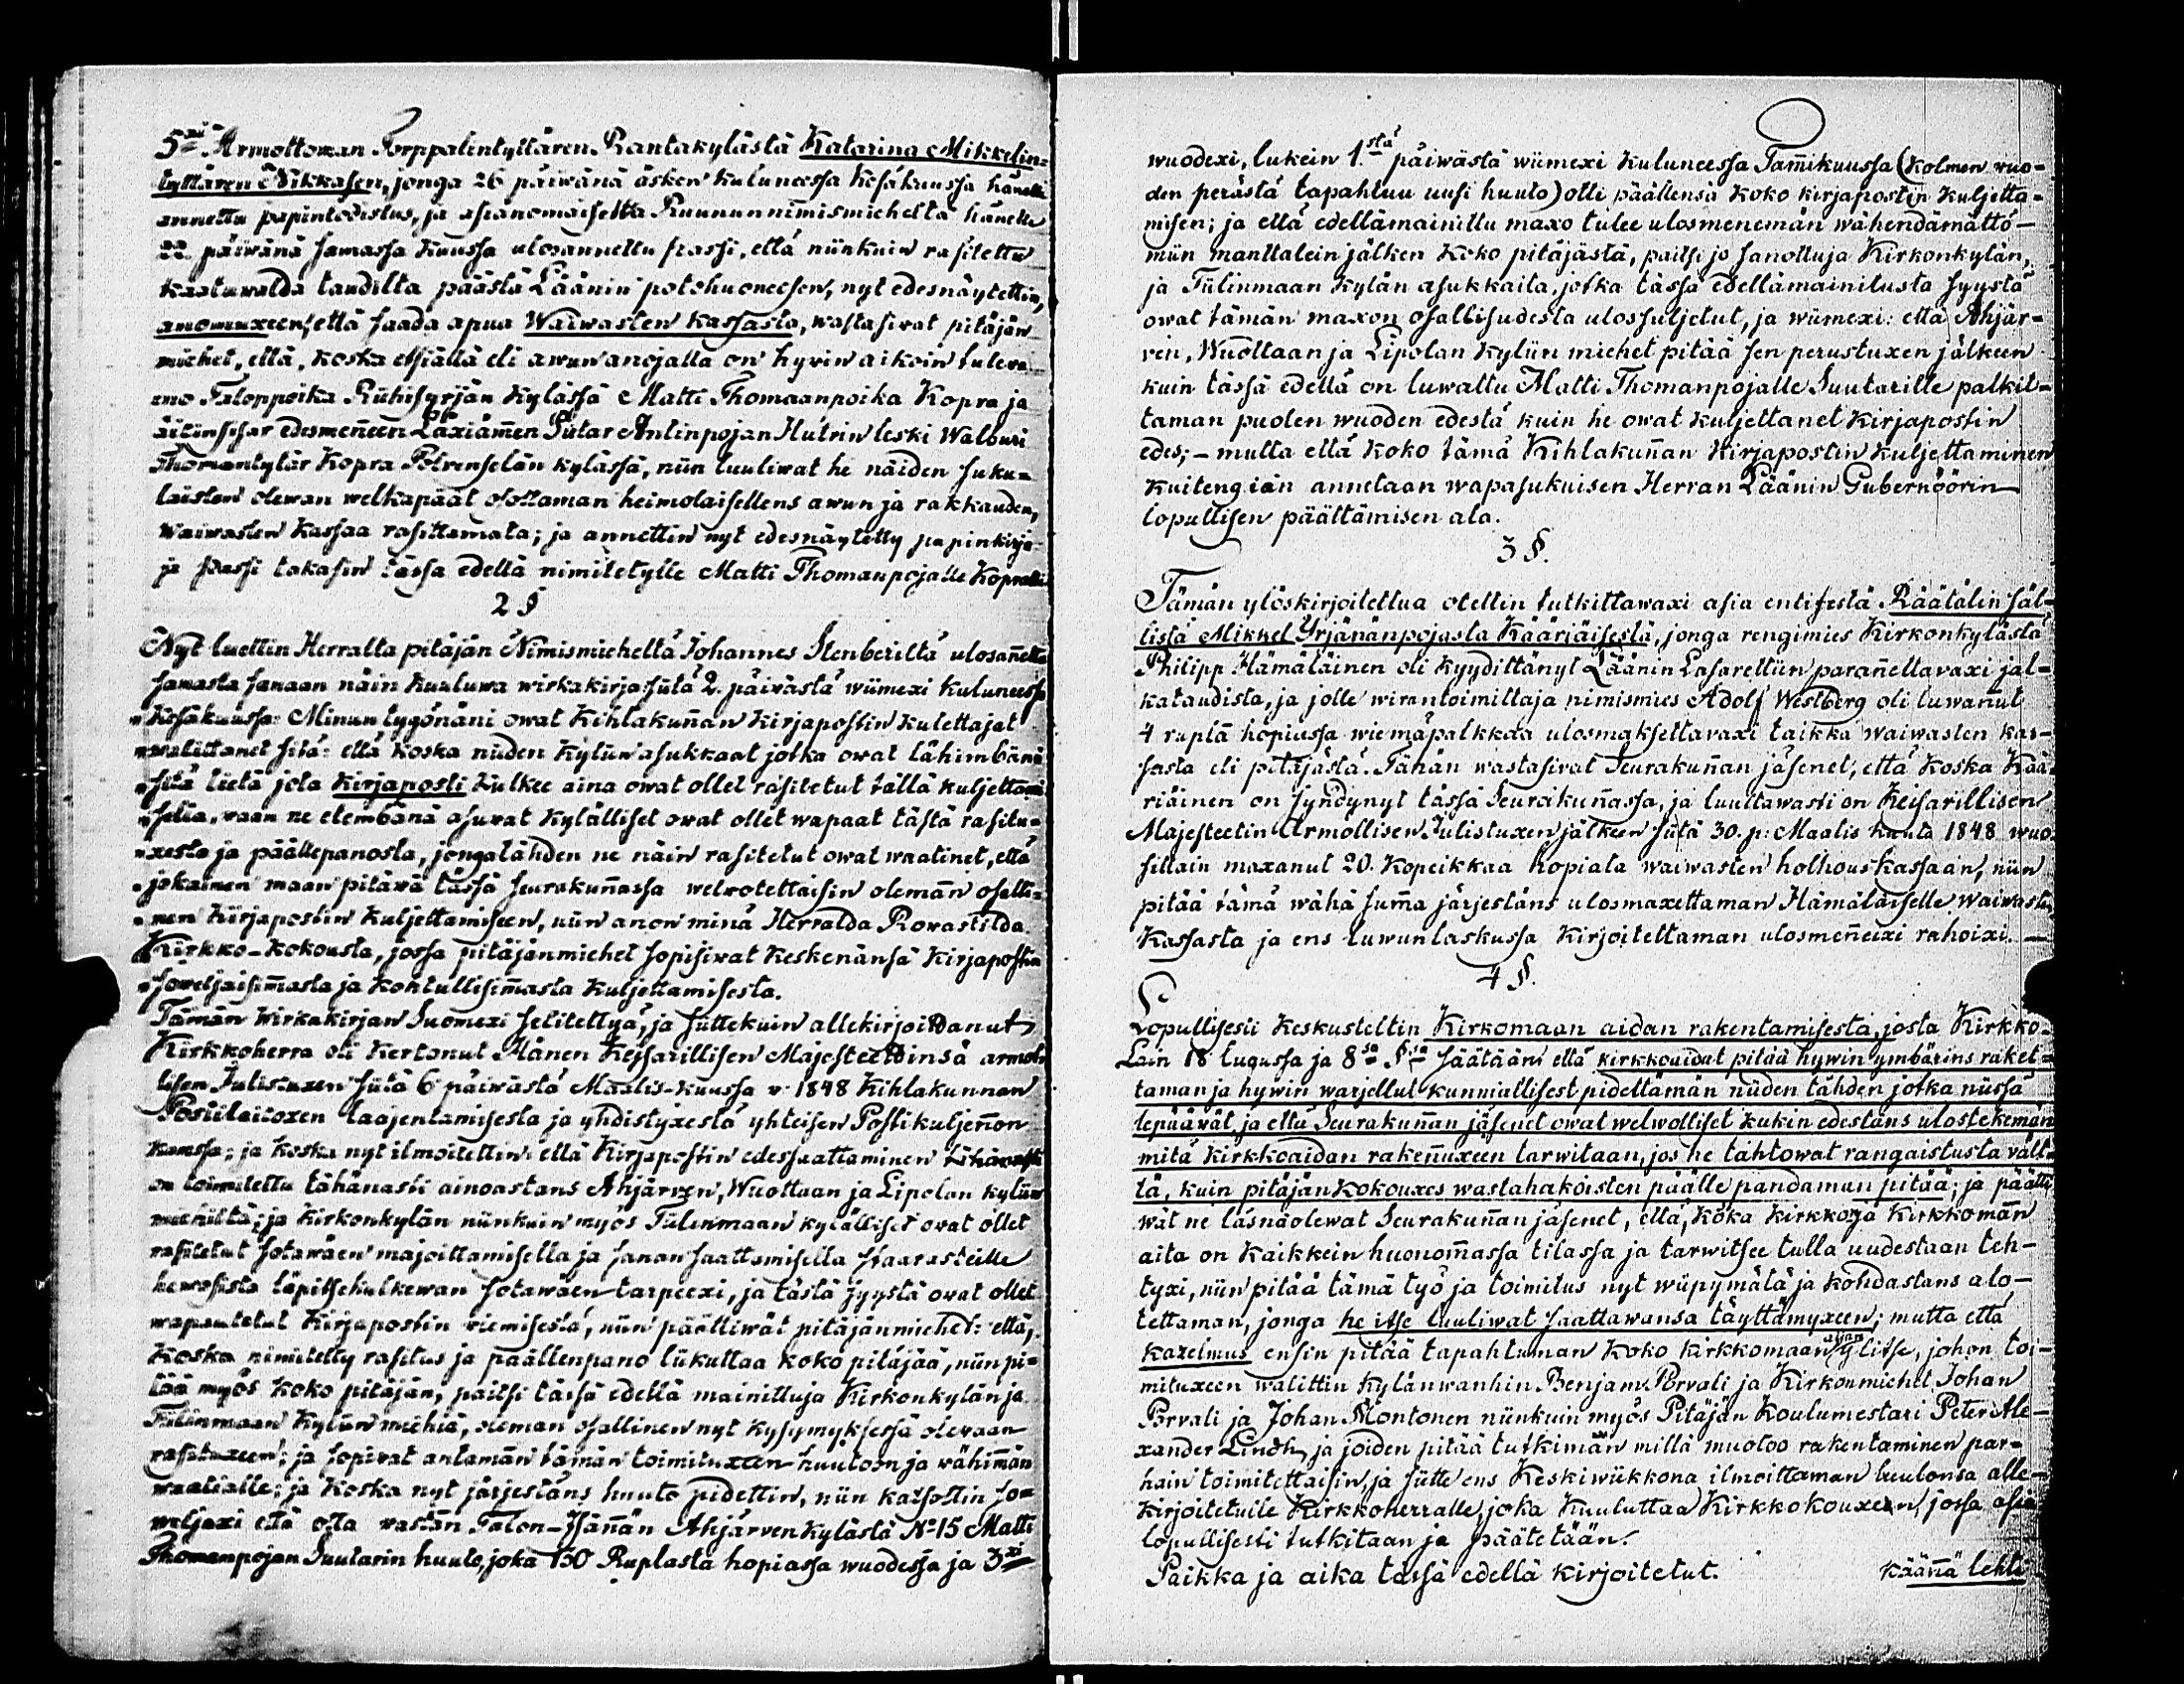 5:än Armottoman Torpparintyttären Rantakylästä Katarina Mikkelin-
tyttären Mikkasen, jonga 26 päiwänä äsken kuluneessa Kesäkuussa hänelle
annettu papintodistus, ja asianomaiselta Ruunun nimismieheltä hänelle
22 päiwänä samassa Kuussa ulosannettu passi, että niinkuin rasitettu
kaatuwalda taudilta päästä Läänin potohuoneesen, nyt edesnäytettin,
anomuxeen, että saada apua Waiwasten kassasta, wastasiwat pitäjän
miehet, että, koska etsiällä eli awun anojalla on hywin aikoin tulewa
eno Taloppoika Riihisyrjän Kylässä Matti Thomaanpoika Kopra ja
äitinsisar edesmeñeen Laxiämen Sutar Antinpojan Hutrin leski Walburi
Thomantytär Kopra Polvenselän kylässä, niin luuliwat he näiden suku-
laisten olewan welkapäät osottaman heimolaisellens awun ja rakkauden,
Waiwasten Kassaa rasittamata; ja annettin nyt edesnäytetty papinkirja
ja passi takasin tässä edellä nimitetylle Matti Thomanpojalle Kopralle
2 §
Nyt luettin Herralta pitäjän Nimismieheltä Johannes Stenberiltä ulosañettu
samasta sanaan näin kuuluwa wirkakirja siitä 2. päiwästä wiimexi Kuluneessa
Kesäkuussa: Minun tygönäni owat Kihlakuñan Kirjapostin kulettajat
walittanet sitä: että koska niiden Kyliin asukkaat jotka owat lähimbänä
sitä tietä jota Kirjaposti kulkee aina owat ollet rasitetut tällä kuljettami-
sella, waan ne etembänä asuwat Kylälliset owat ollet wapaat tästä rasitu-
xesta ja päällepanosta, jongatähden ne näin rasitetut owat waatinet, että
jokainen maan pitäwä tässä seurakuñassa welwotettaisin olemañ osalli-
nen Kirjapostin Kuljettamiseen, niin anon minä Herralda Rowastilda
Kirkko-Kokousta, jossa pitäjänmiehet sopisiwat Keskenänsä Kirjapostin
soweljaisim̃asta ja Kohtullisim̃asta Kuljettamisesta.
Tämän Wirkakirjan Suomexi selitettyä, ja siittekuin allekirjoittanut
Kirkkoherra oli Kertonut Hänen Keisarillisen Majesteettinsä armol-
lisen Julistuxen siitä 6 päiwästä Maalis-Kuussa v. 1848 Kihlakunnan
Postilaitoxen laajentamisesta ja yhdistyxestä yhteisen Postikuljeñon
kanssa; ja koska nyt ilmoitettin että Kirjapostin edessaattaminen
on toimitettu tähänasti ainoastans Ahjärwen, Wuottaan ja Lipolan kyliin
miehiltä; ja Kirkonkylän niinkuin myös Tiilinmaan kylälliset owat ollet
rasitetut Sotawäen majoittamisella ja sanan saattamisella staarasteille
hewosista läpitsekulkewan Sotawäen tarpeexi, ja tästä syystä owat ollet
wapautetut Kirjapostin wiemisestä, niin päättiwät pitäjänmiehet: että,
Koska nimitetty rasitus ja päällenpano liikuttaa koko pitäjää, niin pi-
tää myös koko pitäjän, paitsi tässä edellä mainittuja Kirkonkylän ja
Tiilinmaan Kyliin miehiä, oleman osallinen nyt kysymyksessä olewaan
rasituxeen; ja sopiwat antamañ tämän toimituxen huutoon ja wähim̃än
waatialle; ja koska nyt järjestäns huuto pidettin, niin katsottin so-
weljaxi että otta wastan Talon-Isäñän Ahjärwen kylästä No 15 Matti
Thomanpojan Suutarin huuto, joka 130 Ruplasta hopiassa wuodessa ja 3:xi
wuodexi, lukein 1:stä päiwästä wiimexi kuluneessa Tam̃ikuussa (kolmen wuo-
den perästä tapahtuu uusi huuto) otti päällensä koko kirjapostin kuljetta-
misen; ja että edellämainittu maxo tulee ulosmenemän wähendämättö-
miin manttalein jälken Koko pitäjästä, paitsi jo sanottuja Kirkonkylän,
ja Tiilinmaan kylän asukkaita, jotka tässä edellämainitusta syystä
owat tämän maxon osallisudesta ulossuljetut, ja wiimexi: että Ahjär-
ven, Wuottaan ja Lipolan Kyliin miehet pitää sen perustuxen jälkeen
kuin tässä edellä on luwattu Matti Thomanpojalle Suutarille palkit-
taman puolen wuoden edestä kuin he owat kuljettanet Kirjapostin
edes; - mutta että Koko tämä Kihlakuñan Kirjapostin kuljettaminen
Kuitengiän annetaan wapasukuisen Herran Läänin Gubernöörin
lopullisen päättämisen ala.
3 §.
Tämän ylöskirjoitettua otettin tutkittawaxi asia entisestä Räätälin säl-
listä Mikkel Yrjänänpojasta Kääriäisestä, jonga rengimies Kirkonkylästä
Philipp Hämäläinen oli kyydittänyt Läänin Lasarettiin parañettavaxi jal-
kataudista, ja jolle wirantoimittaja nimismies Adolf Westberg oli luwañut
4 rupla hopiassa wiemäpalkkaa ulosmaksettavaxi taikka waiwasten kas-
sasta eli pitäjästä. Tähän wastasiwat Seurakuñan jäsenet, että koska Kää-
riäinen on syndynyt tässä Seurakuñassa, ja luultawasti on Keisarillisen
Majesteetin Armollisen Julistuxen jälkeen siitä 30. p: Maalis kuuta 1848 wuo-
sittain maxanut 20. Kopeikkaa hopiata waiwasten holhous kassaan, niin
pitää tämä wähä sum̃a järjestäns ulosmaxettaman Hämäläiselle Waiwasten
Kassasta ja ens luwunlaskussa Kirjoitettaman ulosmeñeixi rahoixi. -
4 §.
Lopullisesti Keskusteltin Kirkomaan aidan rakentamisesta, josta Kirkko-
Lain 18 lugussa ja 8:sa §:sa säätään että kirkkoaidat pitää hywin ymbärins raket-
taman ja hywin warjellut kunniallisest pidettämän niiden tähden jotka niissä
lepääwät, ja että Seurakuñan jäsenet owat welwolliset kukin edestäns ulostekemän
mitä Kirkkoaidan rakeñuxeen tarwitaan, jos he tahtowat rangaistusta vält-
tä, kuin pitäjänkokouxes wastahakoisten päälle pandaman pitää; ja päätti-
wät ne läsnäolewat Seurakuñan jäsenet, että, koka kirkko ja Kirkkomañ
aita on kaikkein huonom̃assa tilassa ja tarwitsee tulla uudestaan teh-
tyxi, niin pitää tämä työ ja toimitus nyt wiipymätä ja kohdastans alo-
tettaman, jonga he itse luuliwat saattawansa täyttämyxeen; mutta että
kazelmus ensin pitää tapahtuman koko kirkkomaan aijan ylitse, johon toi-
mituxeen walittin Kylänwanhin Benjam. Porvali ja Kirkonmiehet Johan
Porvali ja Johan Montonen niinkuin myös Pitäjän Koulumestari Peter Ale-
xander Lindh, ja joiden pitää tutkimañ millä muotoo rakentaminen par-
hain toimitettaisin, ja siitte ens Keskiwiikkona ilmoittaman luulonsa alle-
kirjoitetulle Kirkkoherralle, joka Kuuluttaa Kirkkokouxen, jossa asia
lopullisesti tutkitaan ja päätetään.
Paikka ja aika tässä edellä kirjoitetut.
käännä lehti